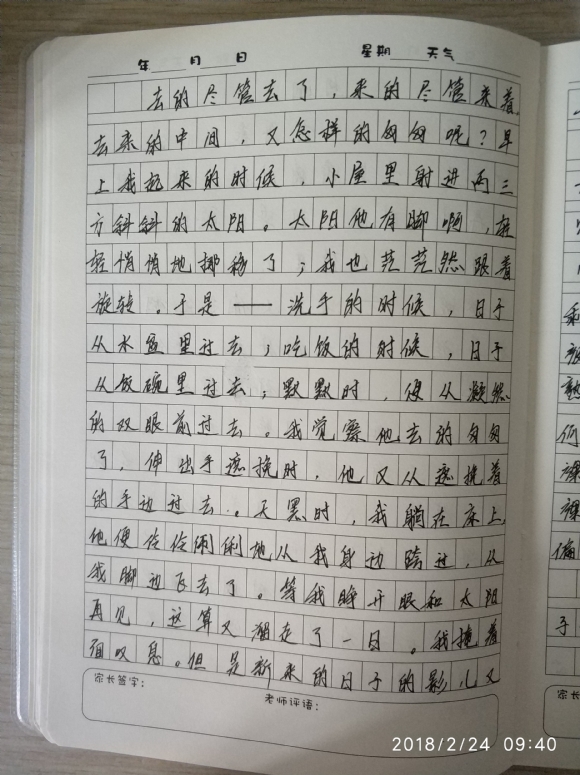 年 月 日 星期 天气
去的尽管去了，来的尽管来着，
去来的中间，又怎样的匆匆呢？早
上我起来的时候，小屋里射进两三
方斜斜的太阳。太阳他有脚啊，轻
轻悄悄地挪移了；我也茫茫然跟着
旋转。于是——洗手的时候，日子
从水盆里过去；吃饭的时候，日子
从饭碗里过去；默默时，便从凝然
的双眼前过去。我觉察他去的匆匆
了，伸出手遮挽时，他又从遮挽着
的手边过去。天黑时，我躺在床上，
他便伶伶俐俐地从我身边跨过，从
我脚边飞去了。等我睁开眼和太阳
再见，这算又溜走了一日。我掩着
面叹息。但是新来的日子的影儿又
家长签字：
老师评语：
2018/2/24 09:40